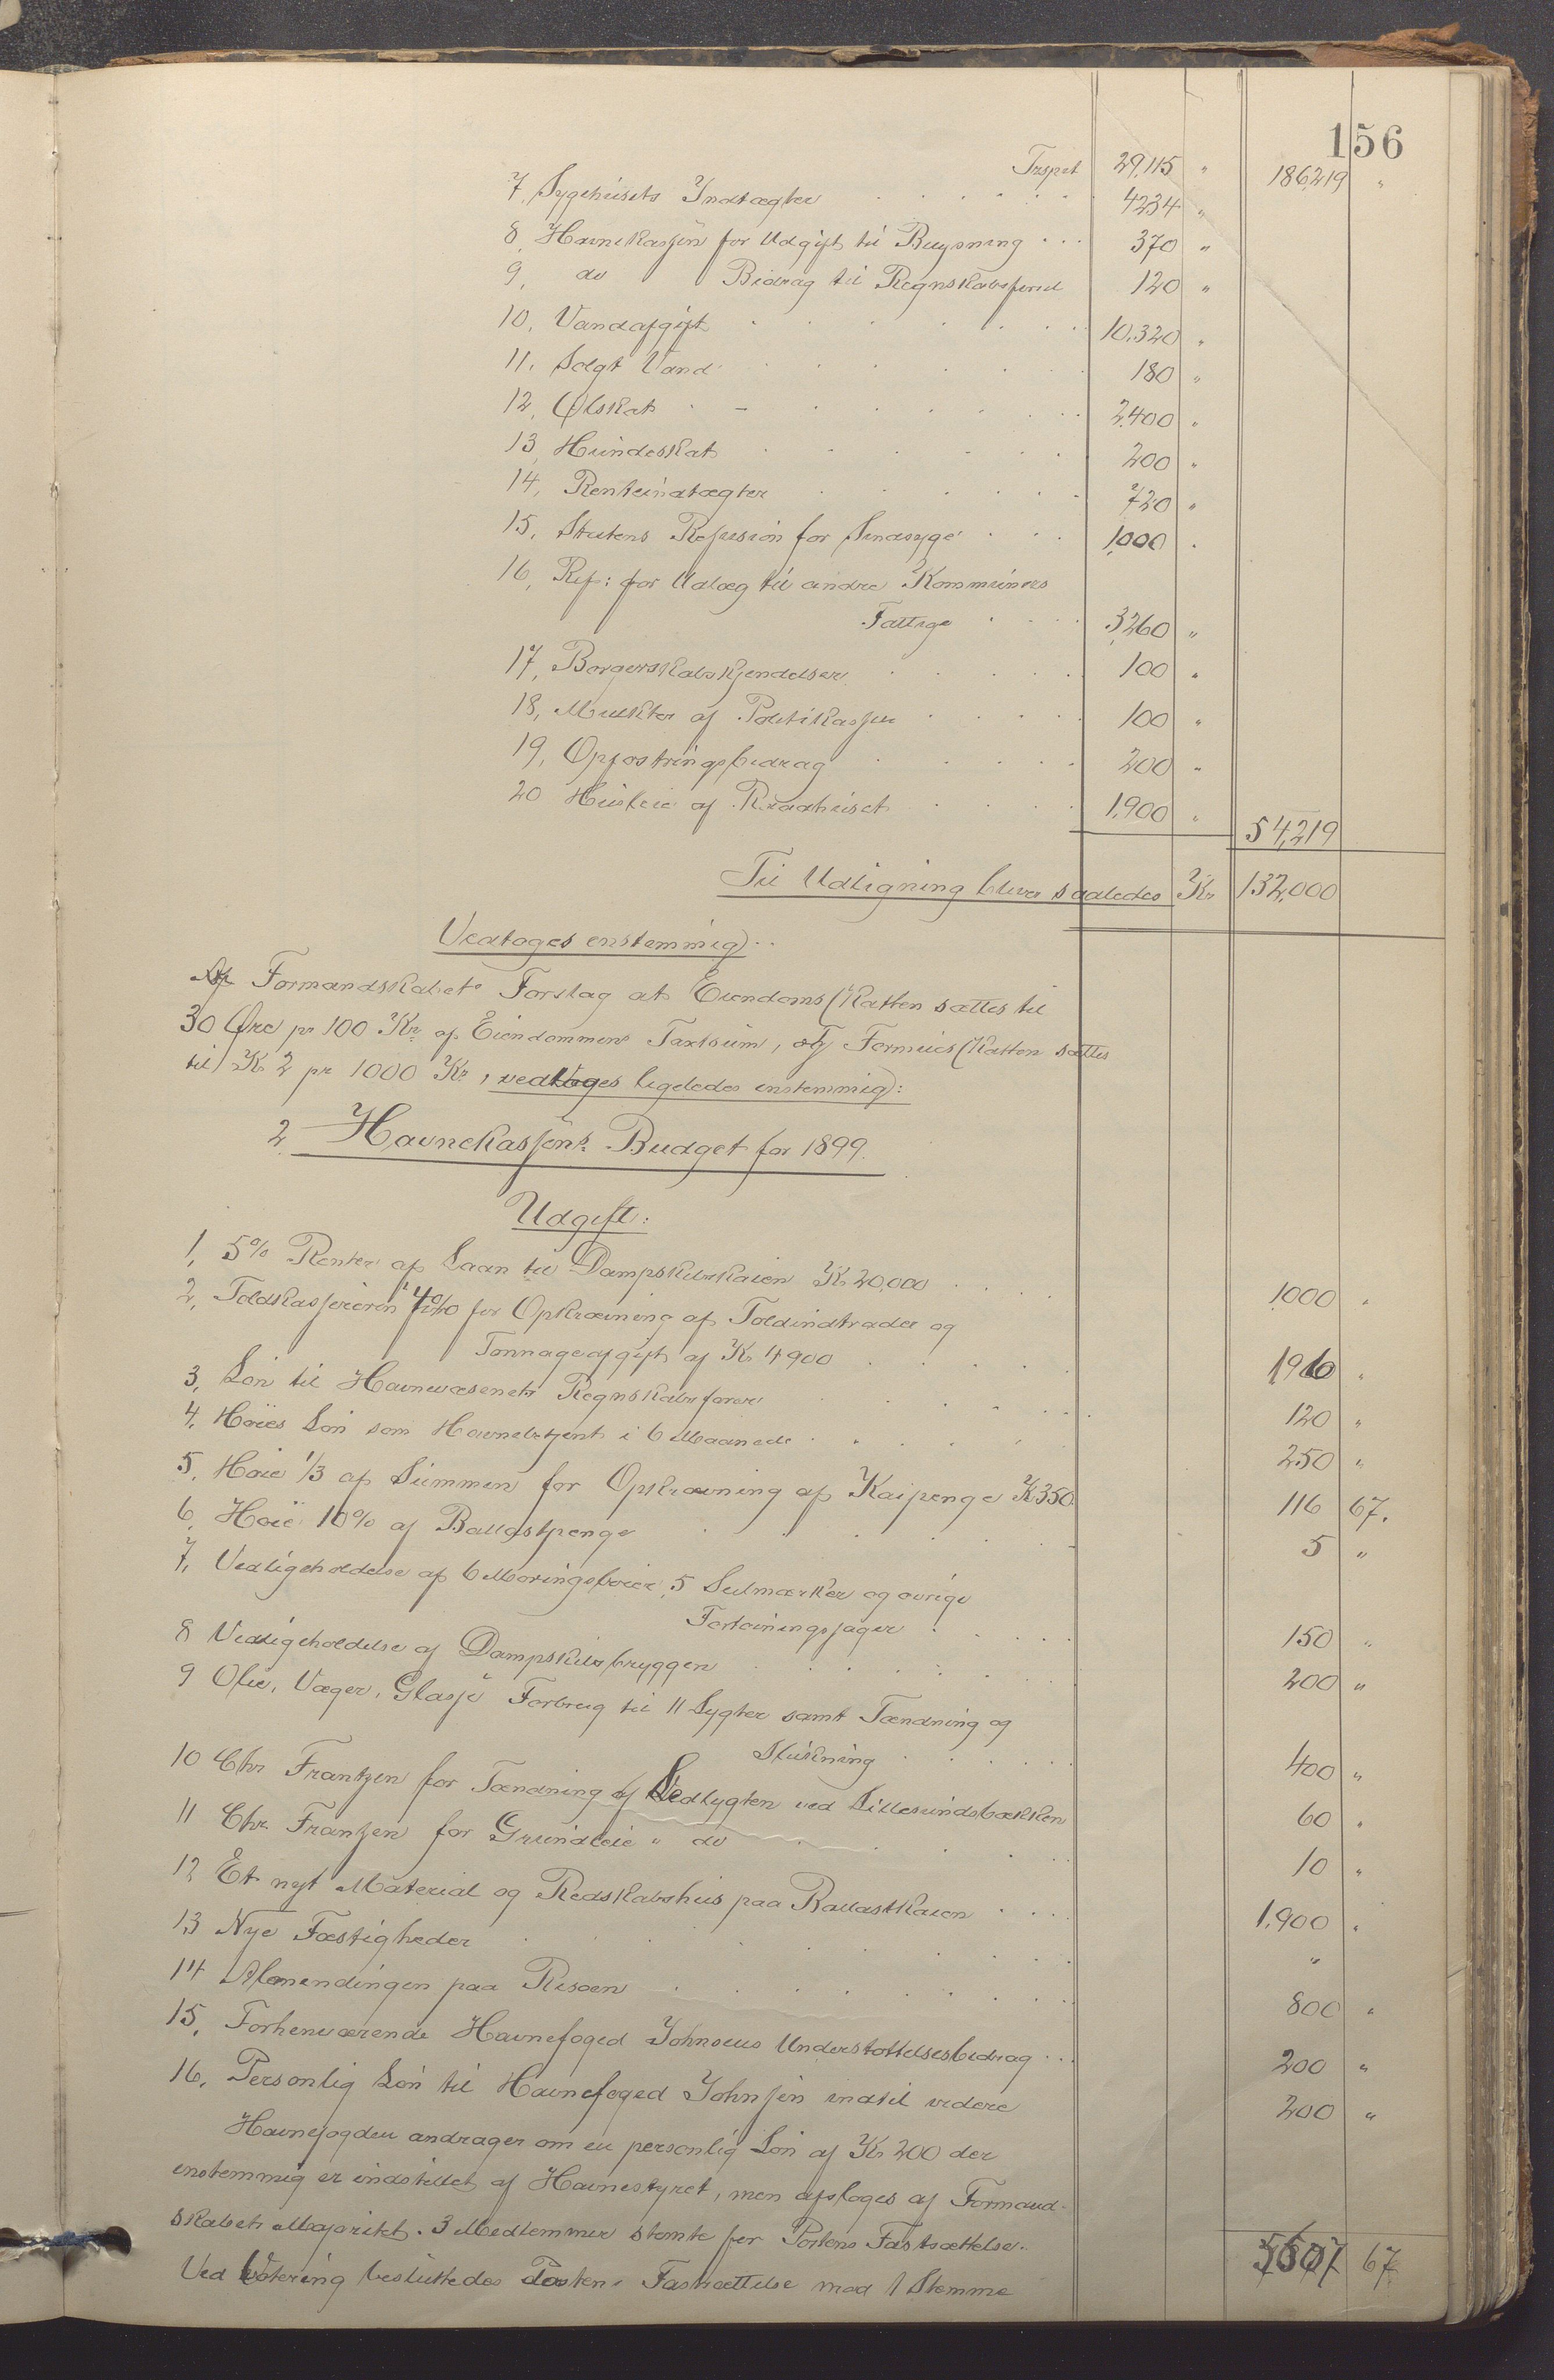 156
Trspt 29,115 " 186,219 "
7, Sygehusets Indtægter 4234 "
8, Havnekassen for Udgift til Brygning 370 "
9, do Bidrag til Regnskabsførsel 120 "
10, Vandafgift 10,320 "
11, Solgt Vand 180 "
12, Ølskat 2,400 "
13, Hundeskat 200 "
14, Renteindtægter 720 "
15, Statens Refusion for Sindsyge 1,000 "
16, Ref: for Udlæg til andre Kommuners
Fattige 3,260 "
17, Borgerskabskjendelser 100 "
18, Mulkter af Politikassen 100 "
19, Opfostringsbidrag 200 "
20 Husleie af Raadhuset 1,900 " 54,219
Til Udligning bliver saaledes Kr 132,000
Vedtoges enstemmig.
Formandskabets Forslag at Eiendomsskatten sættes til
30 Øre pr 100 Kr af Eiendommens Taxtsum, og Formuesskatten sættes
til Kr 2 pr 1000 Kr, vedtoges ligeledes enstemmig:
2 Havnekassens Budget for 1899.
Udgift:
1, 5% Renter af Laan til Dampskibskaien Kr 20,000 1,000 "
2, Toldkassereren 4% for Opkrævning af Toldindtrader og
Tonnageafgift af Kr 4900 196 "
3, Løn til Havnevæsenets Regnskabsfører 120 "
4, Høies Løn som Havnebetjent i 6 Maaneder 250 "
5, Høie 1/3 af Summen for Opkrævning af Kaipenge Kr 350 116 67.
6, Høie 10% af Ballastpenge 5 "
7, Vedligeholdelse af 6 Moringsbøier, 5 Seilmærker og øvrige
Fortøiningsager 150 "
8 Vedligeholdelse af Dampskibsbryggen 200 "
9 Olie, Væger, Glas, Forbrug til 11 Lygter samt Tænding og
Slukning 400 "
10 Chr Frantzen for Tænding af Ledlygten ved Lillesundsbækken 60 "
11 Chr Frantzen for Grundleie " do 10 "
12 Et nyt Material og Redskabshus paa Ballastkaien 1,900 "
13 Nye Fæstigheder "
14 Almendingen paa Risøen 800 "
15, Forhenværende Havnefoged Johnsens Understøttelsesbidrag 200 "
16, Personlig Løn til Havnefoged Johnsen indtil videre 200 "
Havnefogden andrager om en personlig Løn af Kr 200 der
enstemmig er indstillet af Havnestyret, men afsloges af Formand-
skabets Majoritet. 3 Medlemmer stemte for Postens Fastsættelse.
Ved Votering besluttedes Postens Fastsættelse mod 1 Stemme
5607 67